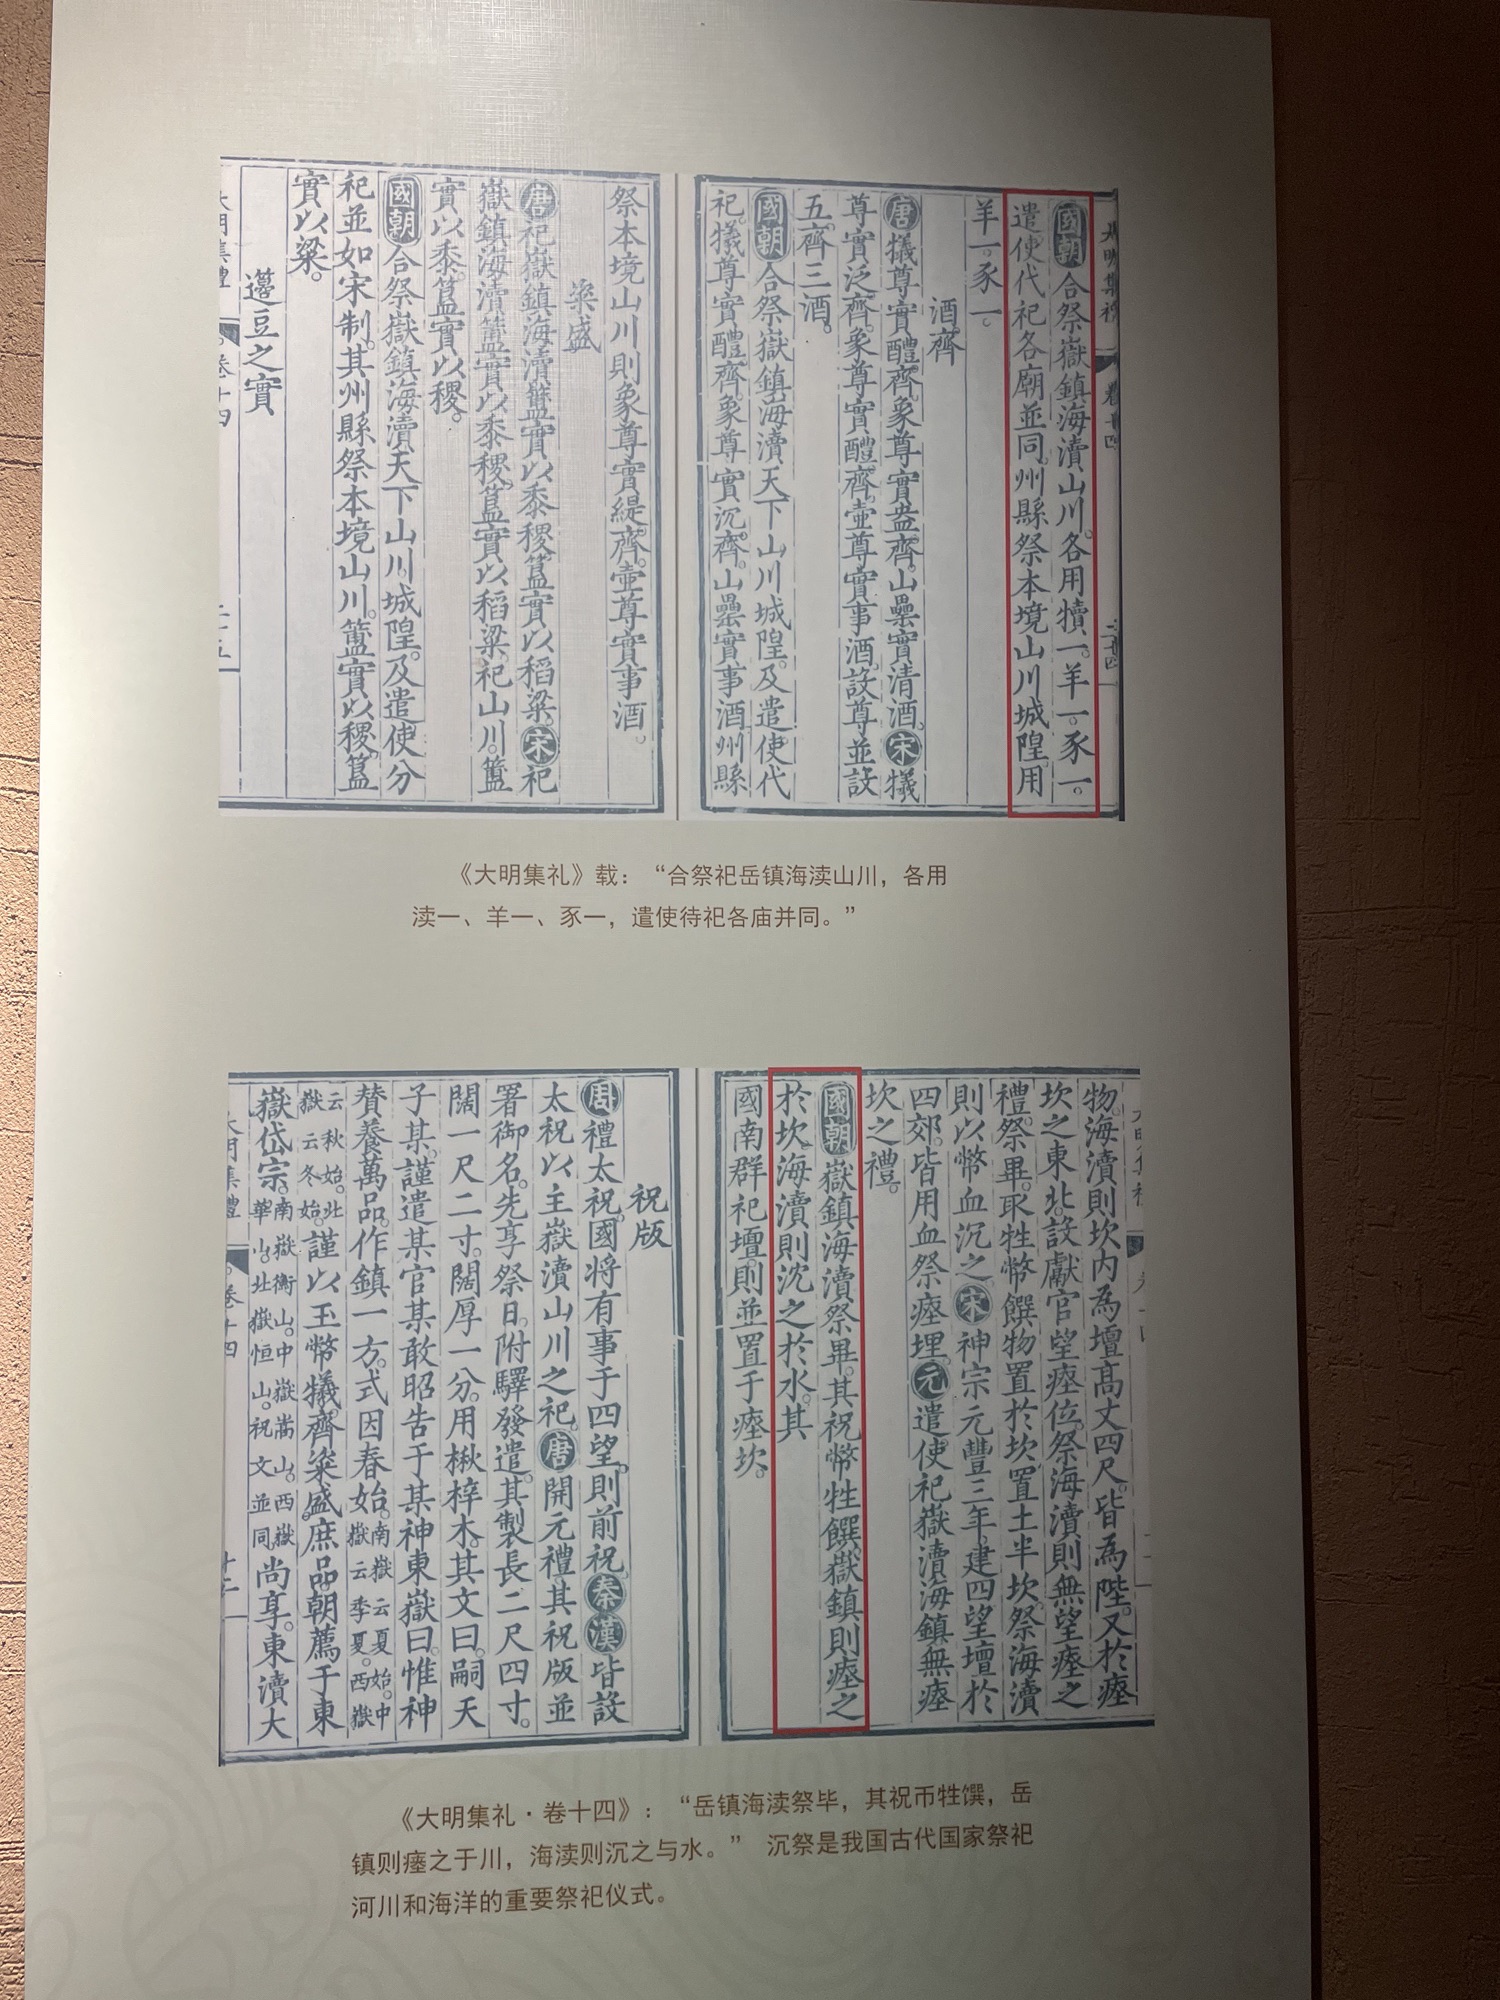 大明集禮
卷十四
國朝合祭嶽鎮海瀆山川。各用犢一。羊一。豕一。
遣使代祀各廟並同。州縣祭本境山川城隍。用
羊一。豕一。
酒齊
唐犧尊實醴齊。象尊實盎齊。山罍實清酒。宋犧
尊實泛齊。象尊實醴齊。壺尊實事酒。設尊並設
五齊三酒。
國朝合祭嶽鎮海瀆天下山川城隍。及遣使代
祀。犧尊實醴齊。象尊實沉齊。山罍實事酒。州縣
祭本境山川則象尊實緹齊。壺尊實事酒。
粢盛
唐祀嶽鎮海瀆簠實以黍稷。簋實以稻粱。宋祀
嶽鎮海瀆簠實以黍稷。簋實以稻粱。祀山川。簠
實以黍。簋實以稷。
國朝合祭嶽鎮海瀆天下山川城隍。及遣使分
祀並如宋制。其州縣祭本境山川。簠實以稷。簋
實以粱。
籩豆之實
大明集禮
卷十四
《大明集礼》载：“合祭祀岳镇海渎山川，各用
渎一、羊一、豕一，遣使待祀各庙并同。”
物。海瀆則坎內為壇高丈四尺。皆為陛。又於瘞
坎之東北。設獻官望瘞位。祭海瀆則無望瘞之
禮。祭畢。取牲幣饌物置於坎。置土半坎。祭海瀆
則以幣血沉之。宋神宗元豐三年。建四望壇於
四郊。皆用血祭瘞埋。元遣使祀嶽瀆海鎮無瘞
坎之禮。
國朝嶽鎮海瀆祭畢。其祝幣牲饌。嶽鎮則瘞之
於坎。海瀆則沈之於水。其
國南群祀壇。則並置于瘞坎。
祝版
周禮太祝。國將有事于四望。則前祝。秦漢皆設
太祝以主嶽瀆山川之祀。唐開元禮。其祝版並
署御名。先享祭日。附驛發遣。其製長二尺四寸。
闊一尺二寸。闊厚一分。用楸梓木。其文曰。嗣天
子某。謹遣某官某敢昭告于某神東嶽曰。惟神
贊養萬品。作鎮一方。式因春始。南嶽云夏始。中嶽云季夏。西嶽
云秋始。北嶽云冬始。謹以玉幣犧齊粢盛。庶品。朝薦于東
嶽岱宗。南嶽衡山。中嶽嵩山。西嶽華山。北嶽恒山。祝文並同。尚享。東瀆大
大明集禮
卷十四
《大明集礼·卷十四》：“岳镇海渎祭毕，其祝币牲馔，岳
镇则瘗之于川，海渎则沉之与水。” 沉祭是我国古代国家祭祀
河川和海洋的重要祭祀仪式。